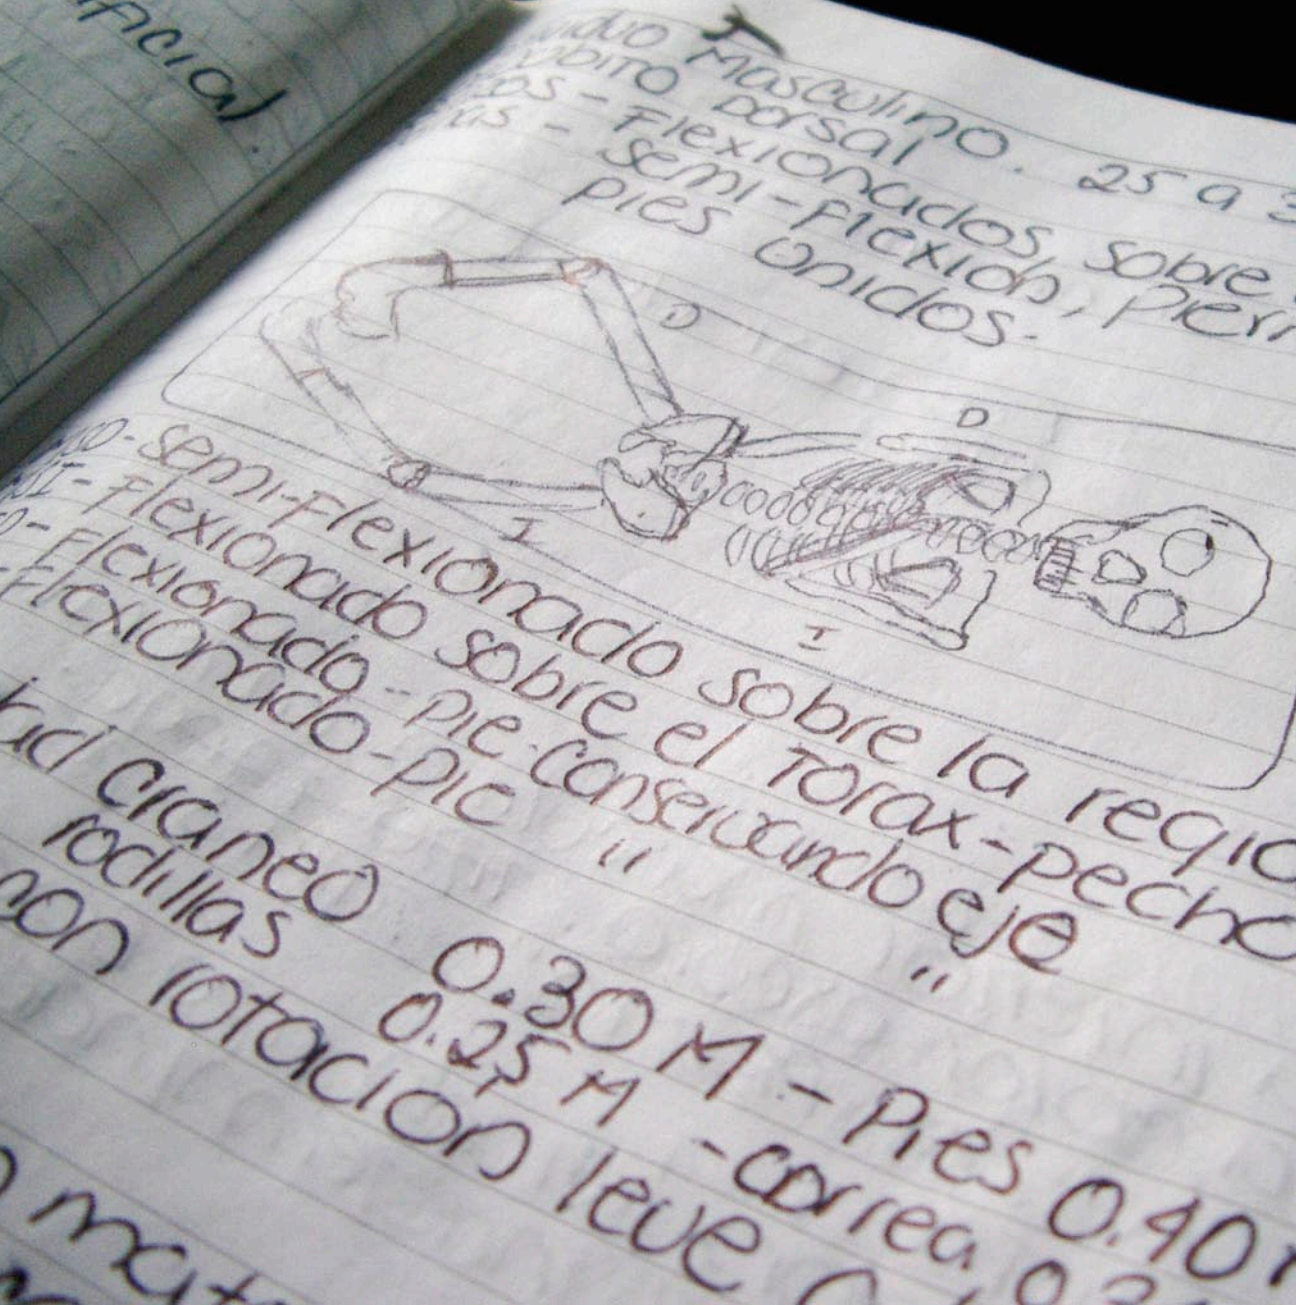 ficial.
Masculino. 25 a
Dorsal
Flexionados, sobre
semi-flexion, pier
pies unidos.
D
D
I
I
semi-flexionado sobre la regio
Flexionado sobre el Torax-pecho
Flexionado-pie-conservando eje
Flexionado-pie " "
craneo 0.30 M - Pies 0.40
rodillas 0.25 M - correa 0.2
con rotacion leve
mat